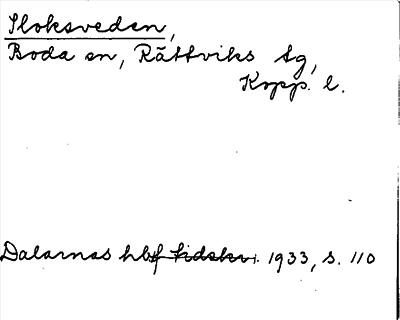 Sloksveden,
Boda sn, Rättviks tg,
Kopp. l.
Dalarnas hbf tidskr. 1933, s. 110